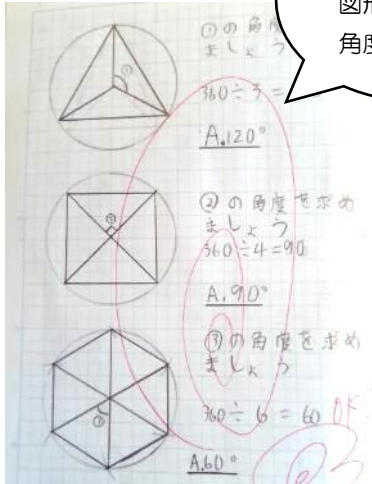 図形
角度
①の角度
ましょう
360÷3=
A.120°
②の角度を求め
ましょう
360÷4=90
A.90°
③の角度を求め
ましょう
360÷6=60 OK
A.60°
①
②
③